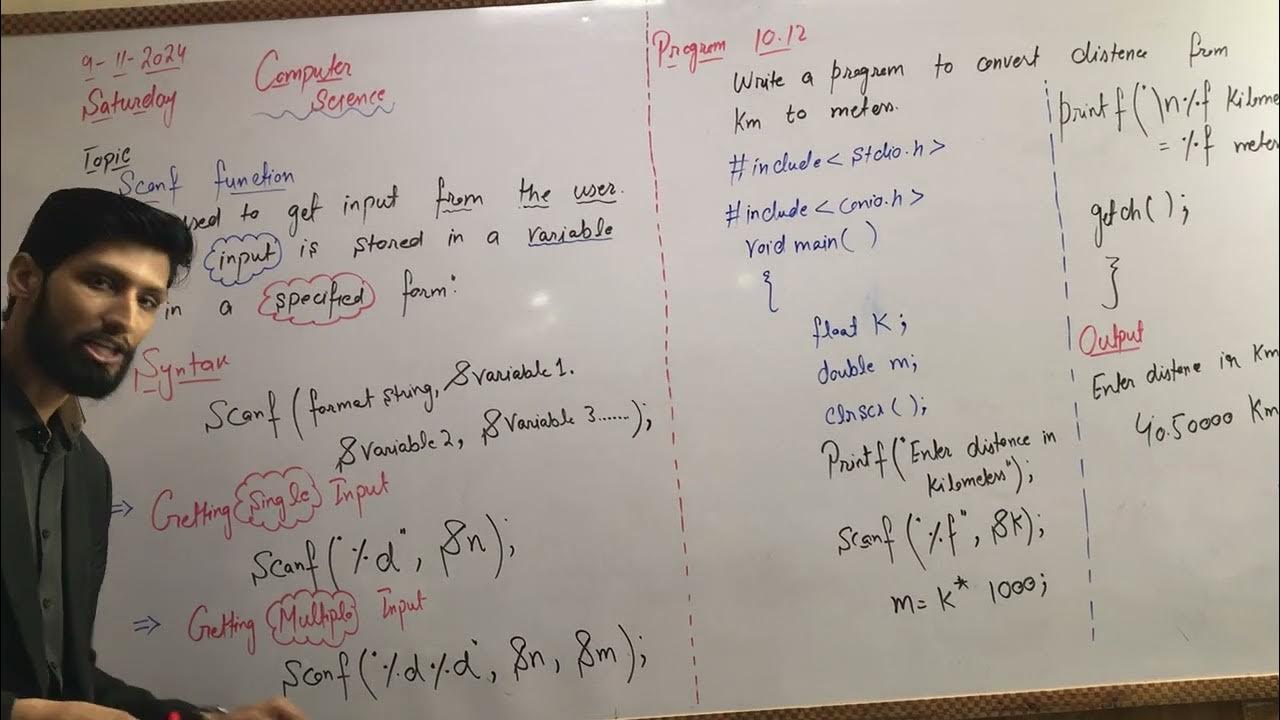 9-11-2024
Saturday
Computer
Science
Topic
Scanf function
used to get input from the user.
input is stored in a variable
in a specified form:
Syntax
Scanf (format string, &variable 1.
&variable 2, &variable 3......);
⇒ Getting Single Input
Scanf("%d", &n);
⇒ Getting Multiple Input
Scanf("%d%d", &n, &m);
Program 10.12
Write a program to convert distence from
Km to meters.
#include< stdio.h>
#include<conio.h>
void main( )
{
float K;
double m;
clrscr( );
Printf("Enter distance in
Kilometers");
Scanf ("%f", &K);
m= K* 1000;
printf("\n%f Kilome
= %f meter
getch( );
}
Output
Enter distene in Km
40.50000 Km